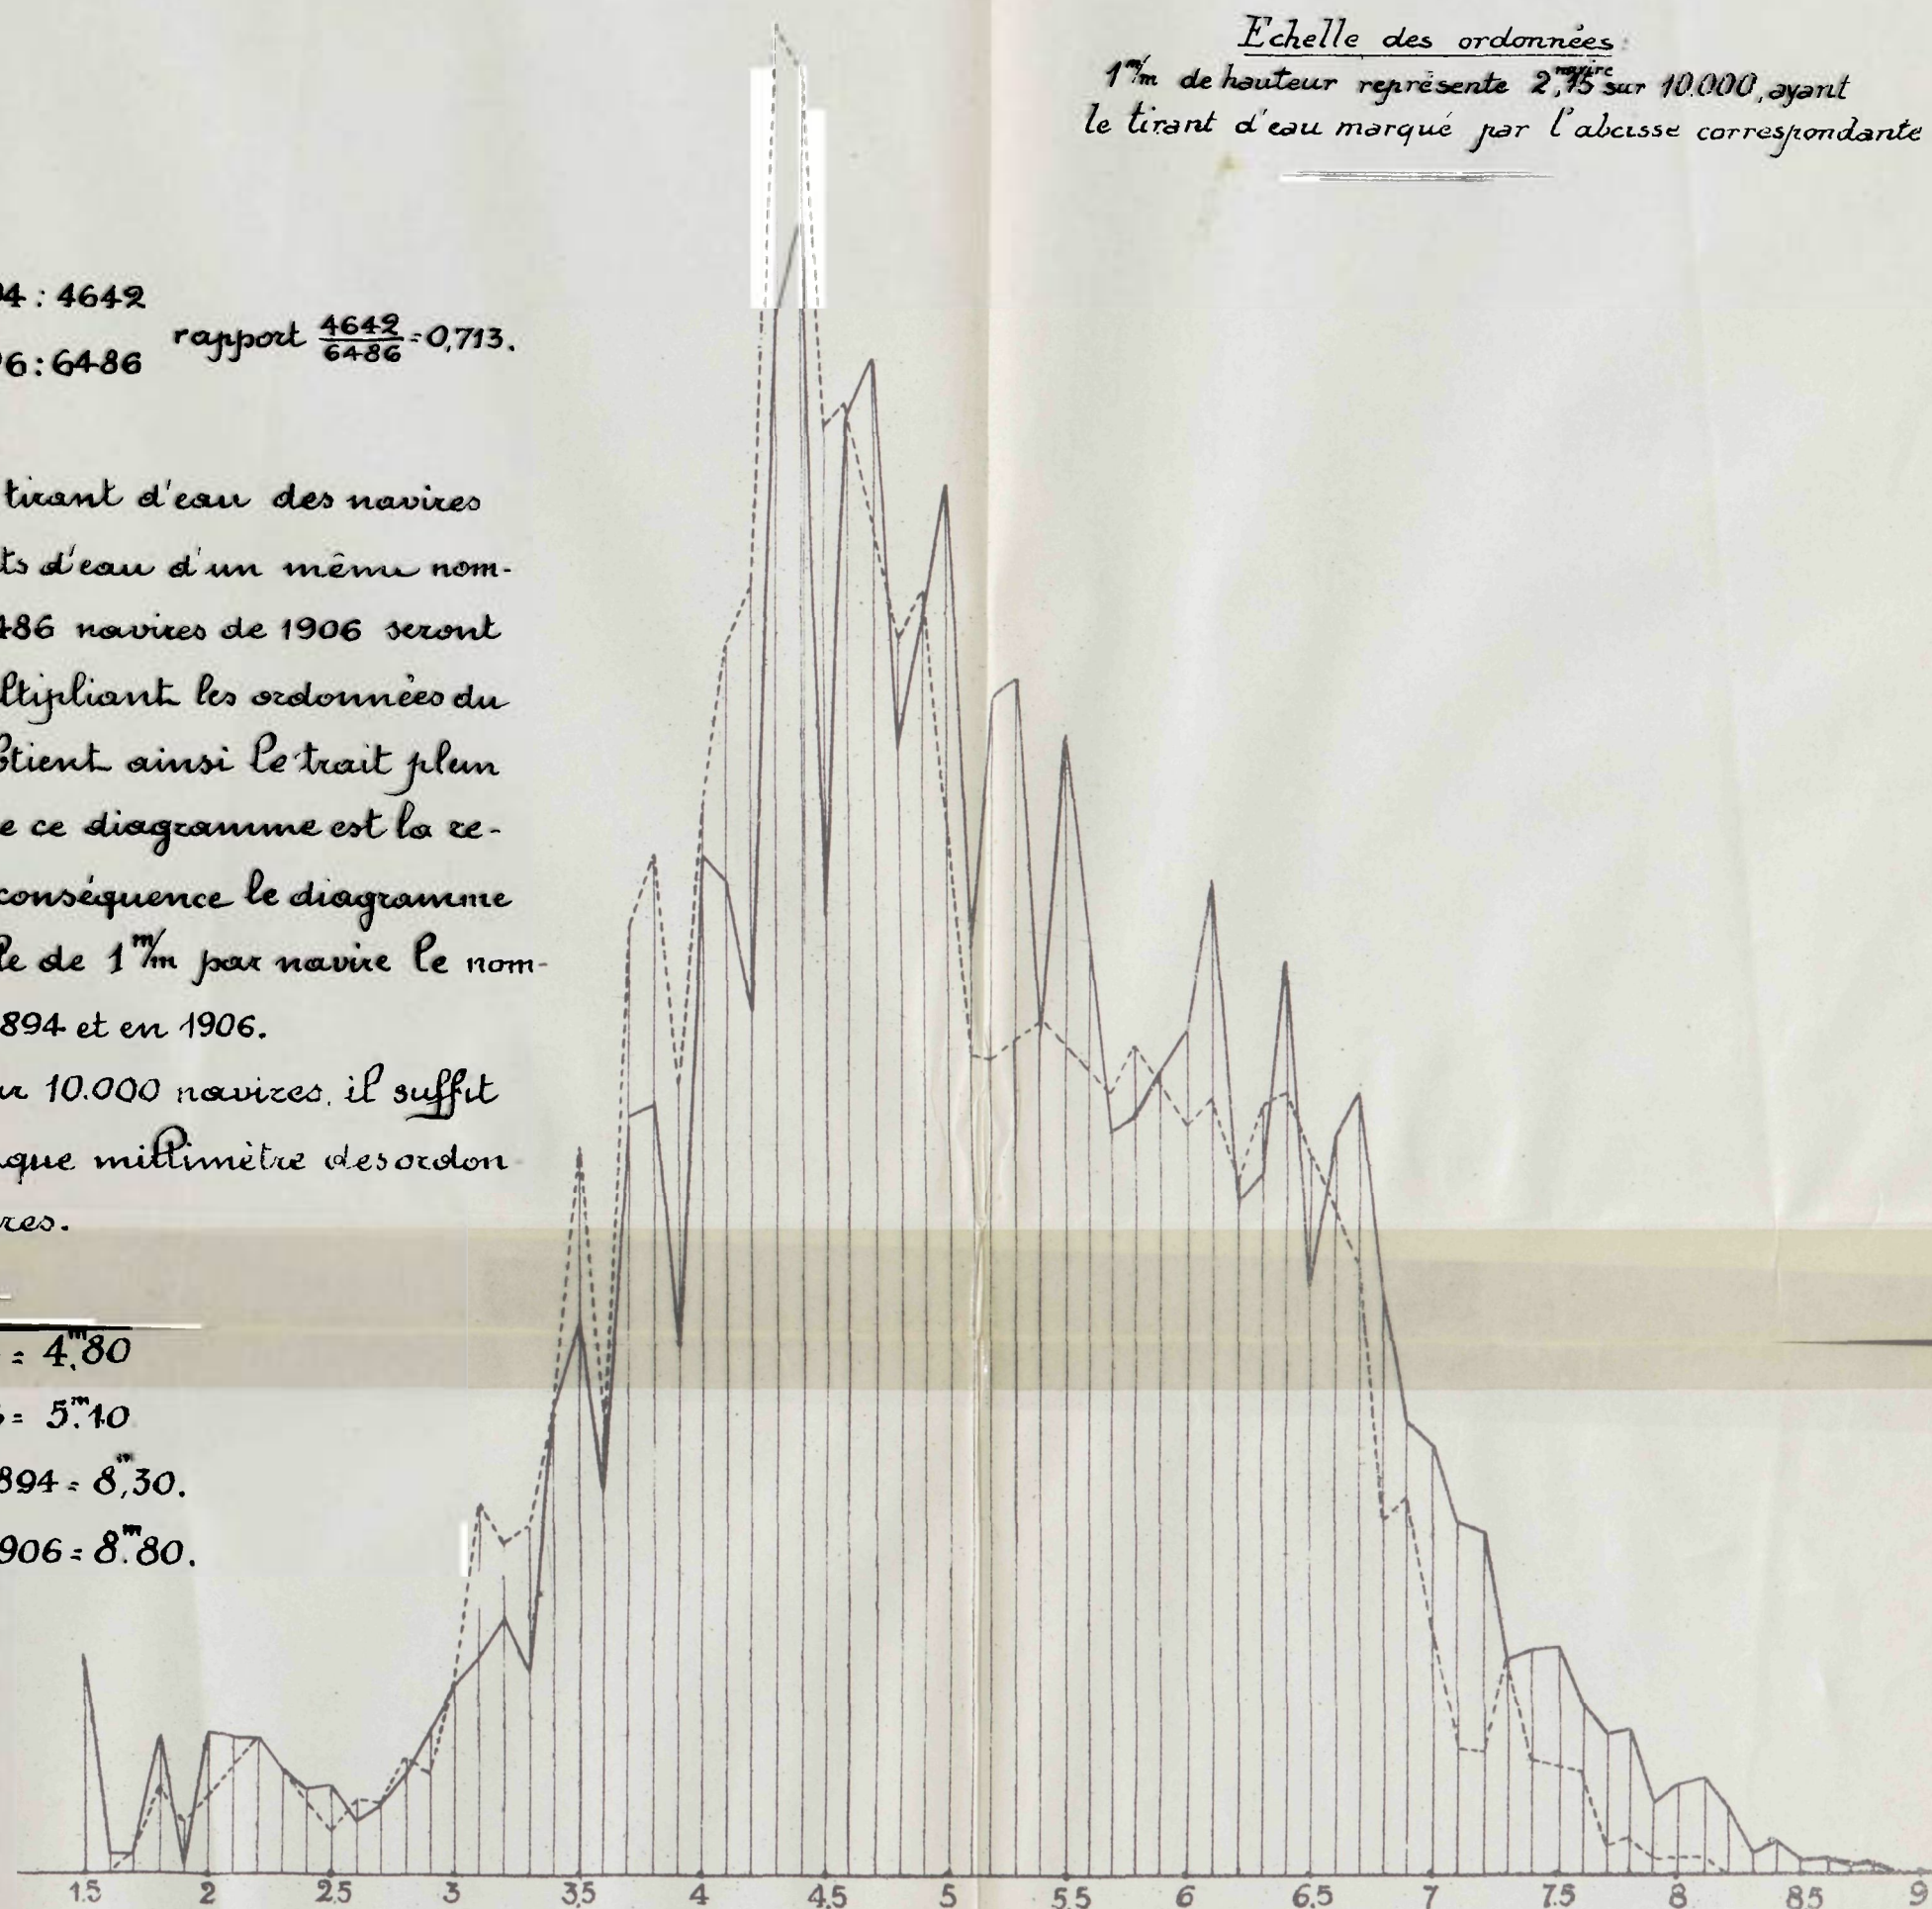 Echelle des ordonnées:
1 m/m de hauteur représente 2,15 navire sur 10.000, ayant
le tirant d'eau marqué par l'abcisse correspondante
94 : 4642
rapport 4642/6486 = 0,713.
6 : 6486
tirant d'eau des navires
ts d'eau d'un même nom-
486 navires de 1906 seront
ltipliant les ordonnées du
btient ainsi le trait plein
e ce diagramme est la re-
conséquence le diagramme
le de 1 m/m par navire le nom-
894 et en 1906.
ur 10.000 navires, il suffit
que millimètre des ordon
res.
= 4,m80
= 5,m10
894 = 8,m30.
906 = 8,m80.
1.5 2 2.5 3 3.5 4 4.5 5 5.5 6 6.5 7 7.5 8 8.5 9